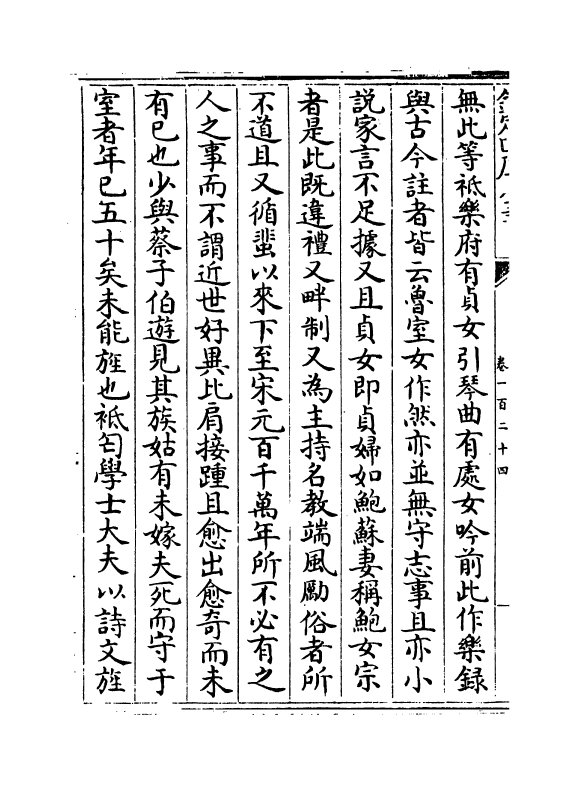 欽定四庫全書
卷一百二十四
一
無此等祗樂府有貞女引琴曲有處女吟前此作樂録
與古今註者皆云魯室女作然亦並無守志事且亦小
説家言不足據又且貞女即貞婦如鮑蘇妻稱鮑女宗
者是此既違禮又畔制又為主持名教端風勵俗者所
不道且又循蜚以來下至宋元百千萬年所不必有之
人之事而不謂近世好異比肩接踵且愈出愈奇而未
有已也少與蔡子伯遊見其族姑有未嫁夫死而守于
室者年已五十矣未能旌也袛匄學士大夫以詩文旌